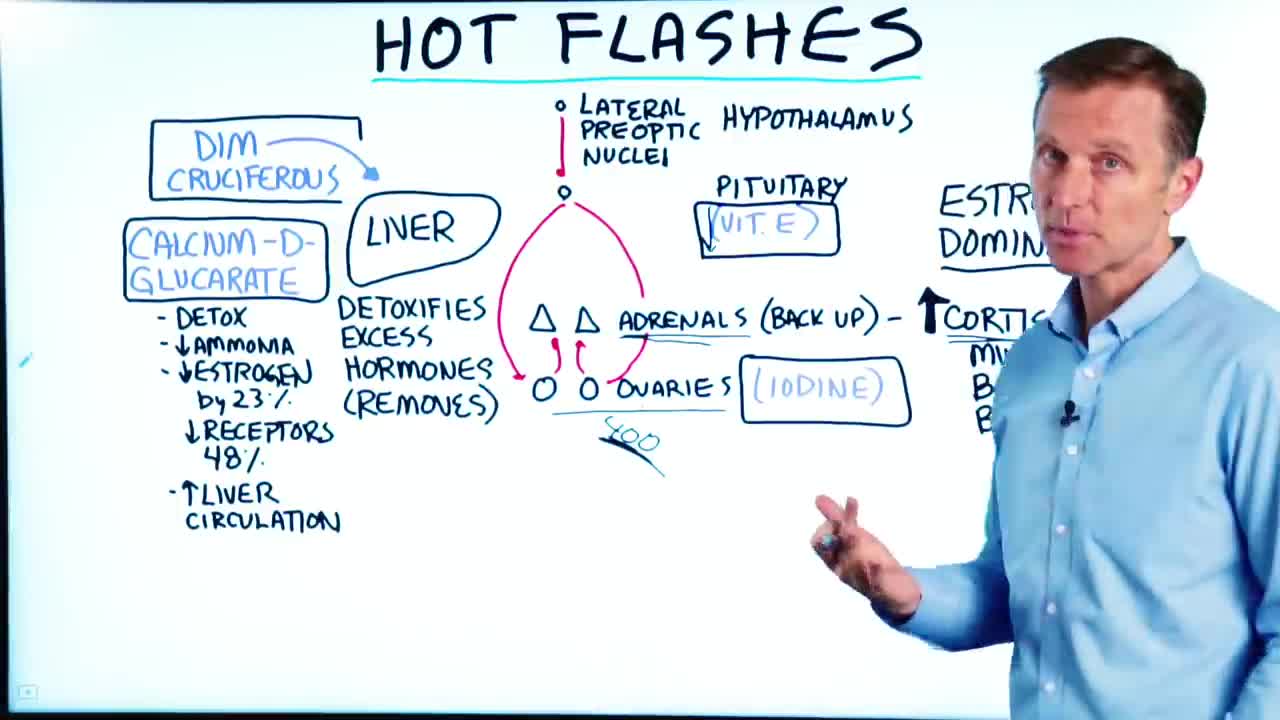 HOT FLASHES
DIM
CRUCIFEROUS
CALCIUM-D-
GLUCARATE
- DETOX
- ↓AMMONIA
- ↓ESTROGEN
by 23%
↓RECEPTORS
48%
- ↑LIVER
CIRCULATION
LIVER
DETOXIFIES
EXCESS
HORMONES
(REMOVES)
LATERAL
PREOPTIC
NUCLEI
HYPOTHALAMUS
PITUITARY
↓(VIT. E)
ADRENALS (BACK UP) -
OVARIES (IODINE)
400